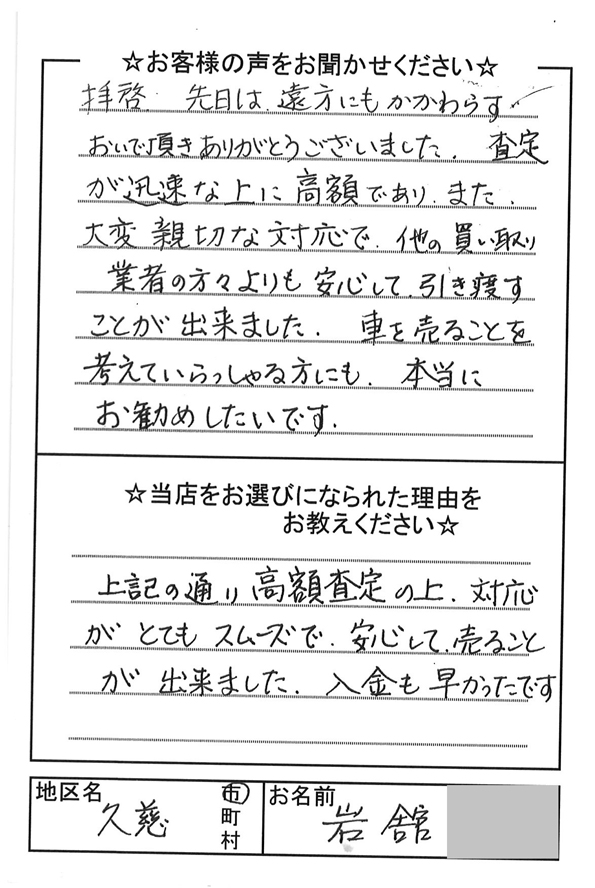 ☆お客様の声をお聞かせください☆
拝啓. 先日は.遠方にもかかわらず
おいで頂きありがとうございました. 査定
が迅速な上に高額であり.また.
大変親切な対応で.他の買い取り
業者の方々よりも安心して.引き渡す
ことが出来ました. 車を売ることを
考えていらっしゃる方にも. 本当に
お勧めしたいです.
☆当店をお選びになられた理由を
お教えください☆
上記の通り高額査定の上.対応
がとてもスムーズで.安心して.売ること
が出来ました.入金も早かったです
地区名 久慈 市 町 村 お名前 岩舘